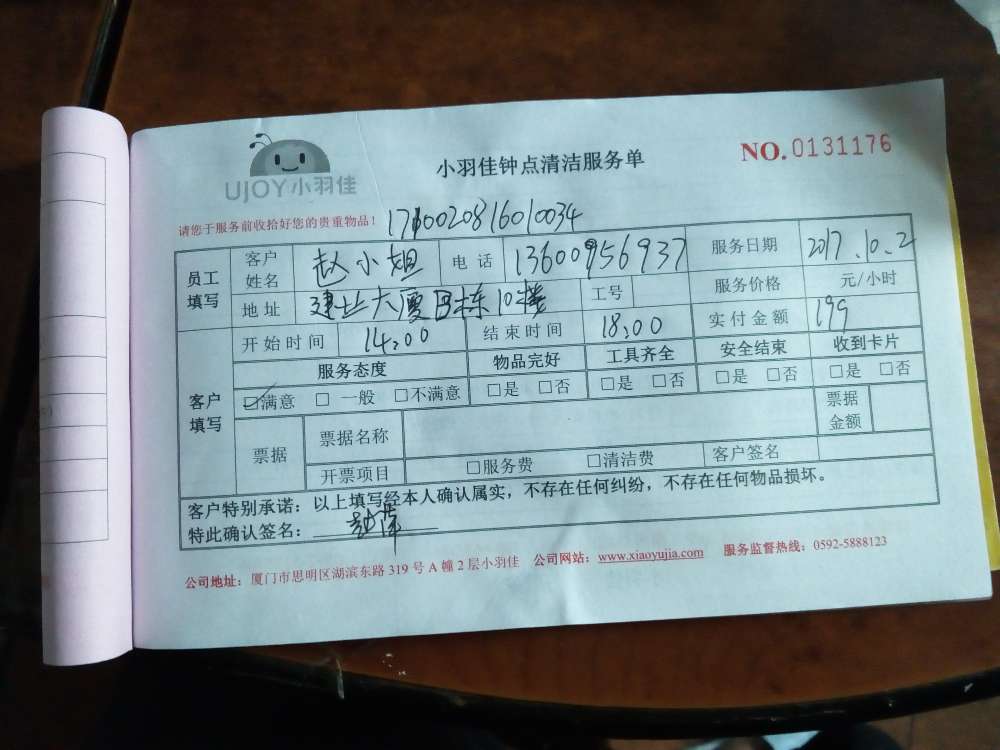 UJOY小羽佳
小羽佳钟点清洁服务单
NO.0131176
请您于服务前收拾好您的贵重物品！
员工填写
客户姓名 赵小姐 电话 13600956937 服务日期 2017.10.2
地址 建业大厦B栋10楼 工号 服务价格 元/小时
开始时间 14:00 结束时间 18:00 实付金额 199
客户填写
服务态度 物品完好 工具齐全 安全结束 收到卡片
☑满意 □一般 □不满意 □是 □否 □是 □否 □是 □否 □是 □否
票据 票据名称 票据金额
开票项目 □服务费 □清洁费 客户签名
客户特别承诺：以上填写经本人确认属实，不存在任何纠纷，不存在任何物品损坏。
特此确认签名：
公司地址：厦门市思明区湖滨东路319号A幢2层小羽佳 公司网站：www.xiaoyujia.com 服务监督热线：0592-5888123